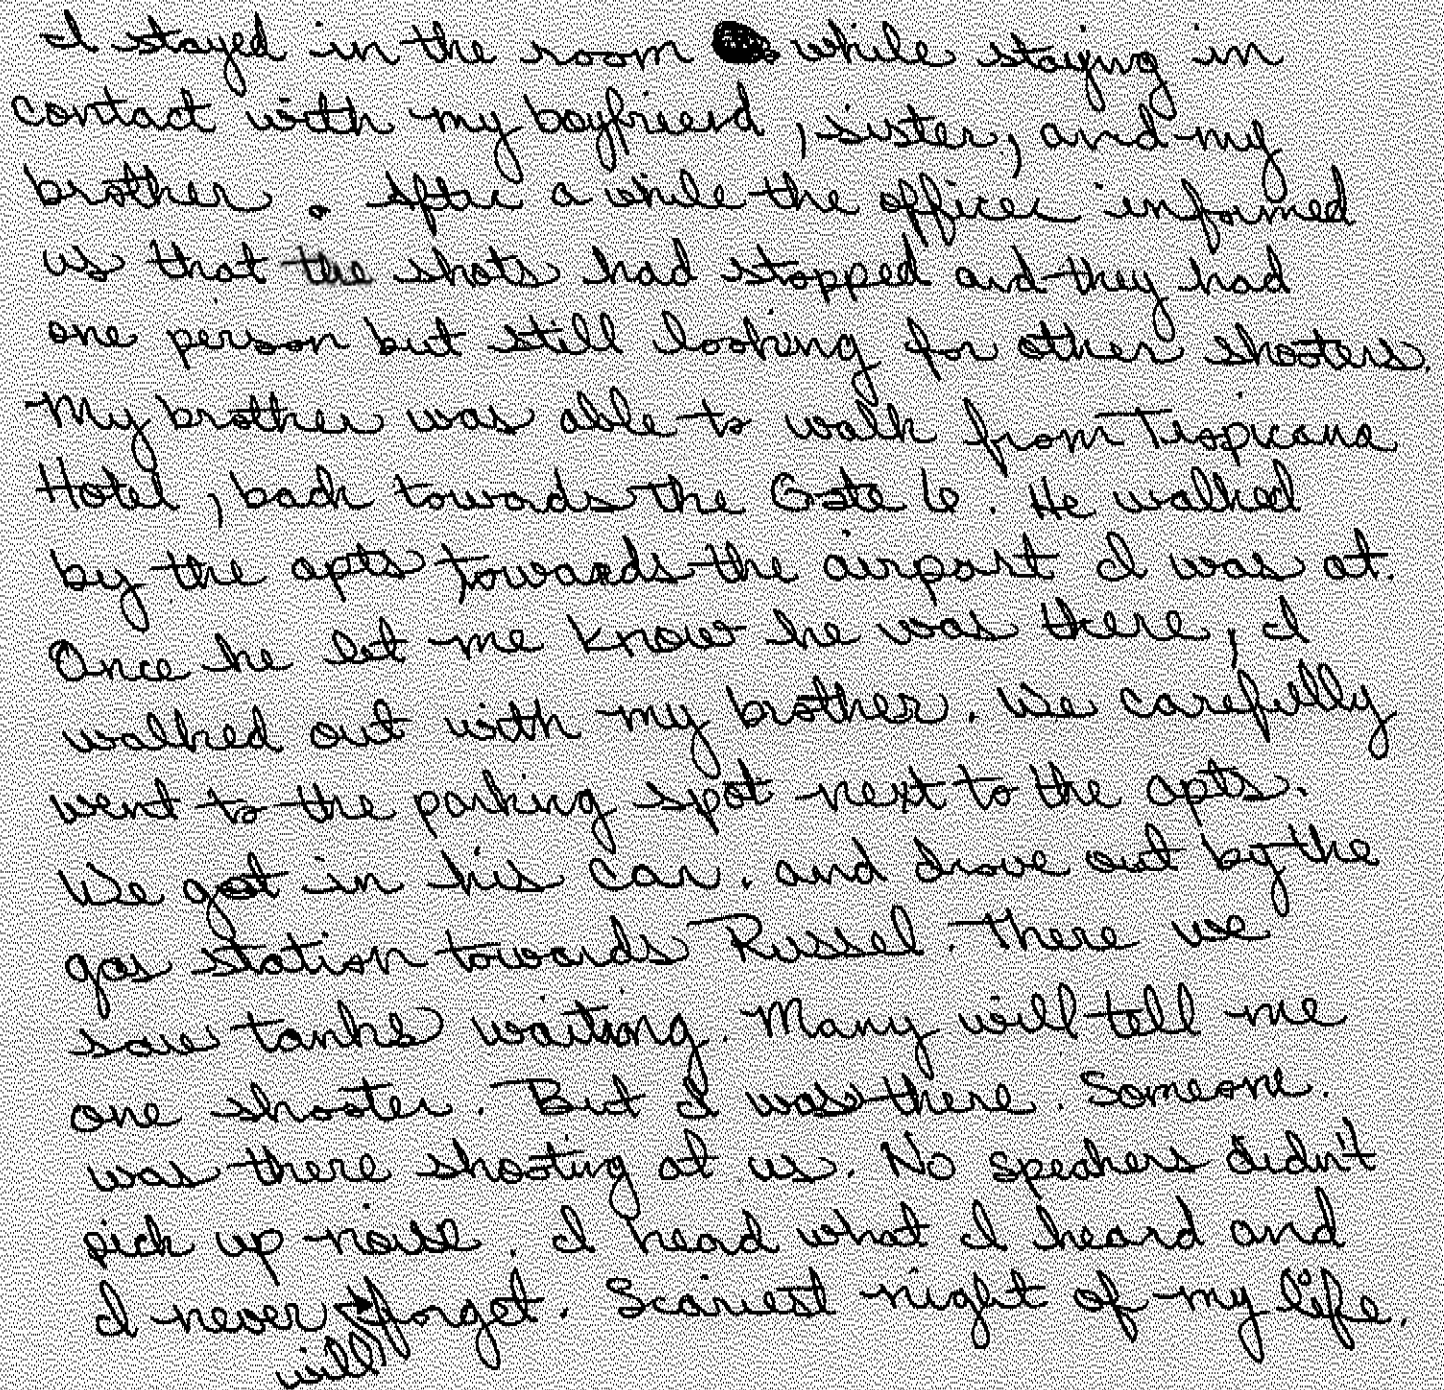 I stayed in the room while staying in
contact with my boyfriend, sister, and my
brother. After a while the officer informed
us that the shots had stopped and they had
one person but still looking for other shooters.
My brother was able to walk from Tropicana
Hotel, back towards the Gate 6. He walked
by the apts towards the airport I was at.
Once he let me know he was there, I
walked out with my brother. We carefully
went to the parking spot next to the apts.
We got in his car. and drove out by the
gas station towards Russel. There we
saw tanks waiting. Many will tell me
one shooter. But I was there. Someone.
was there shooting at us. No speakers didn't
pick up noise. I heard what I heard and
I never forget. Scariest night of my life.
will